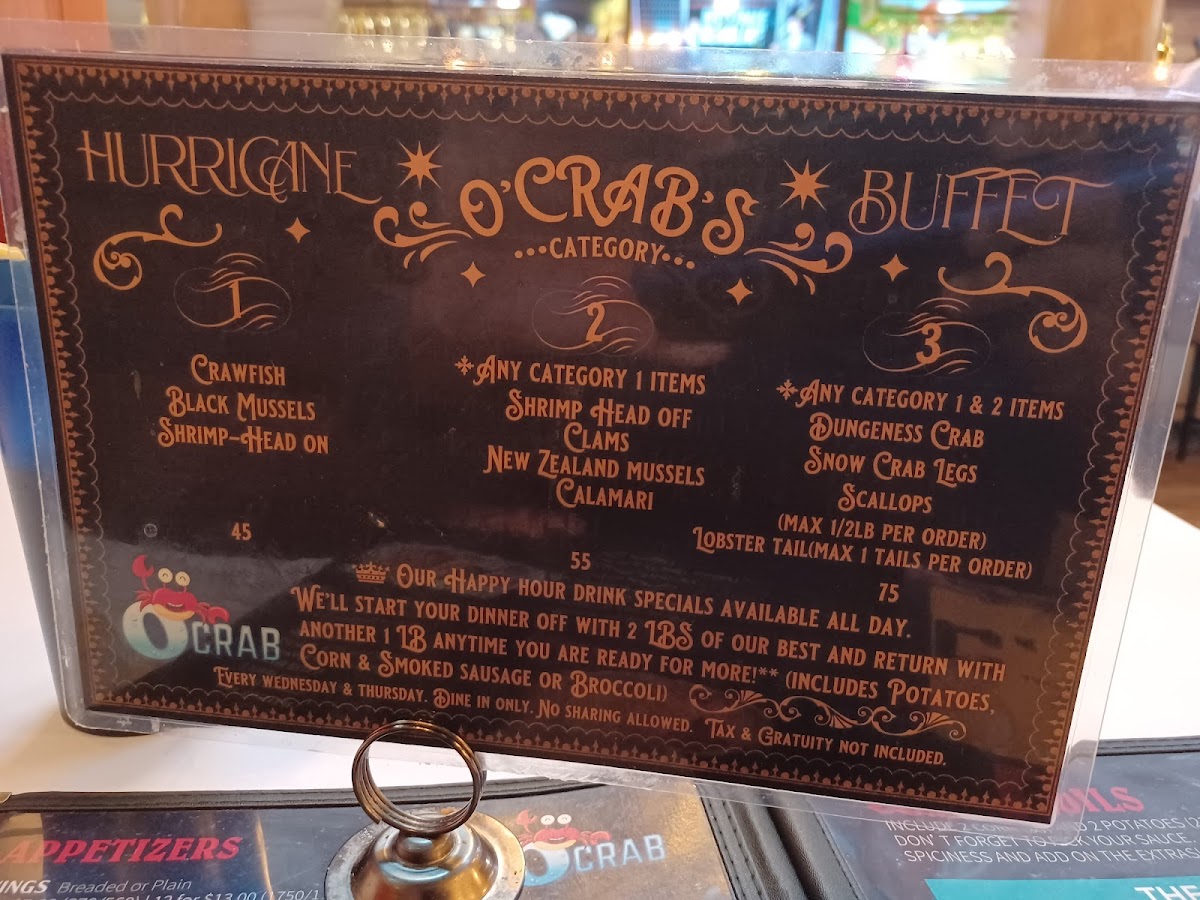 HURRICANE O'CRAB'S BUFFET
...CATEGORY...
1
Crawfish
Black Mussels
Shrimp-Head on
45
2
*Any category 1 items
Shrimp Head off
Clams
New Zealand mussels
Calamari
55
3
*Any category 1 & 2 items
Dungeness Crab
Snow Crab Legs
Scallops
(max 1/2lb per order)
Lobster tail(max 1 tails per order)
75
Our Happy hour drink specials available all day.
We'll start your dinner off with 2 LBS of our best and return with
another 1 LB anytime you are ready for more!** (includes Potatoes,
Corn & Smoked sausage or Broccoli)
Every wednesday & thursday. Dine in only. No sharing allowed. Tax & Gratuity not included.
OCRAB
APPETIZERS
INGS Breaded or Plain
12 for $13.00 (1750/1
OCRAB
INCLUDE 2
2 POTATOES
DON'T FORGET TO
YOUR SAUCE
SPICINESS AND ADD ON THE EXTRAS
THE